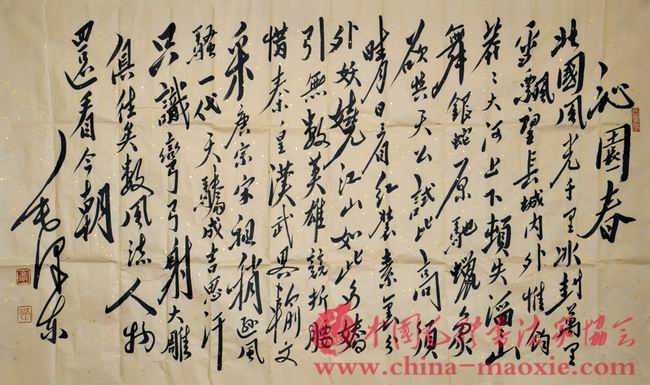 沁園春
北國風光千里冰封萬里
雪飄望長城内外惟餘
莽々大河上下頓失滔々山
舞銀蛇原馳蠟象
欲與天公試比高須
晴日看紅裝素裹分
外妖嬈江山如此多嬌
引無數英雄競折腰
惜秦皇漢武略輸文
采唐宗宋祖稍遜風
騷一代天驕成吉思汗
只識彎弓射大雕
俱往矣數風流人物
還看今朝
毛澤东
中國毛體書法家協會
www.china-maoxie.com